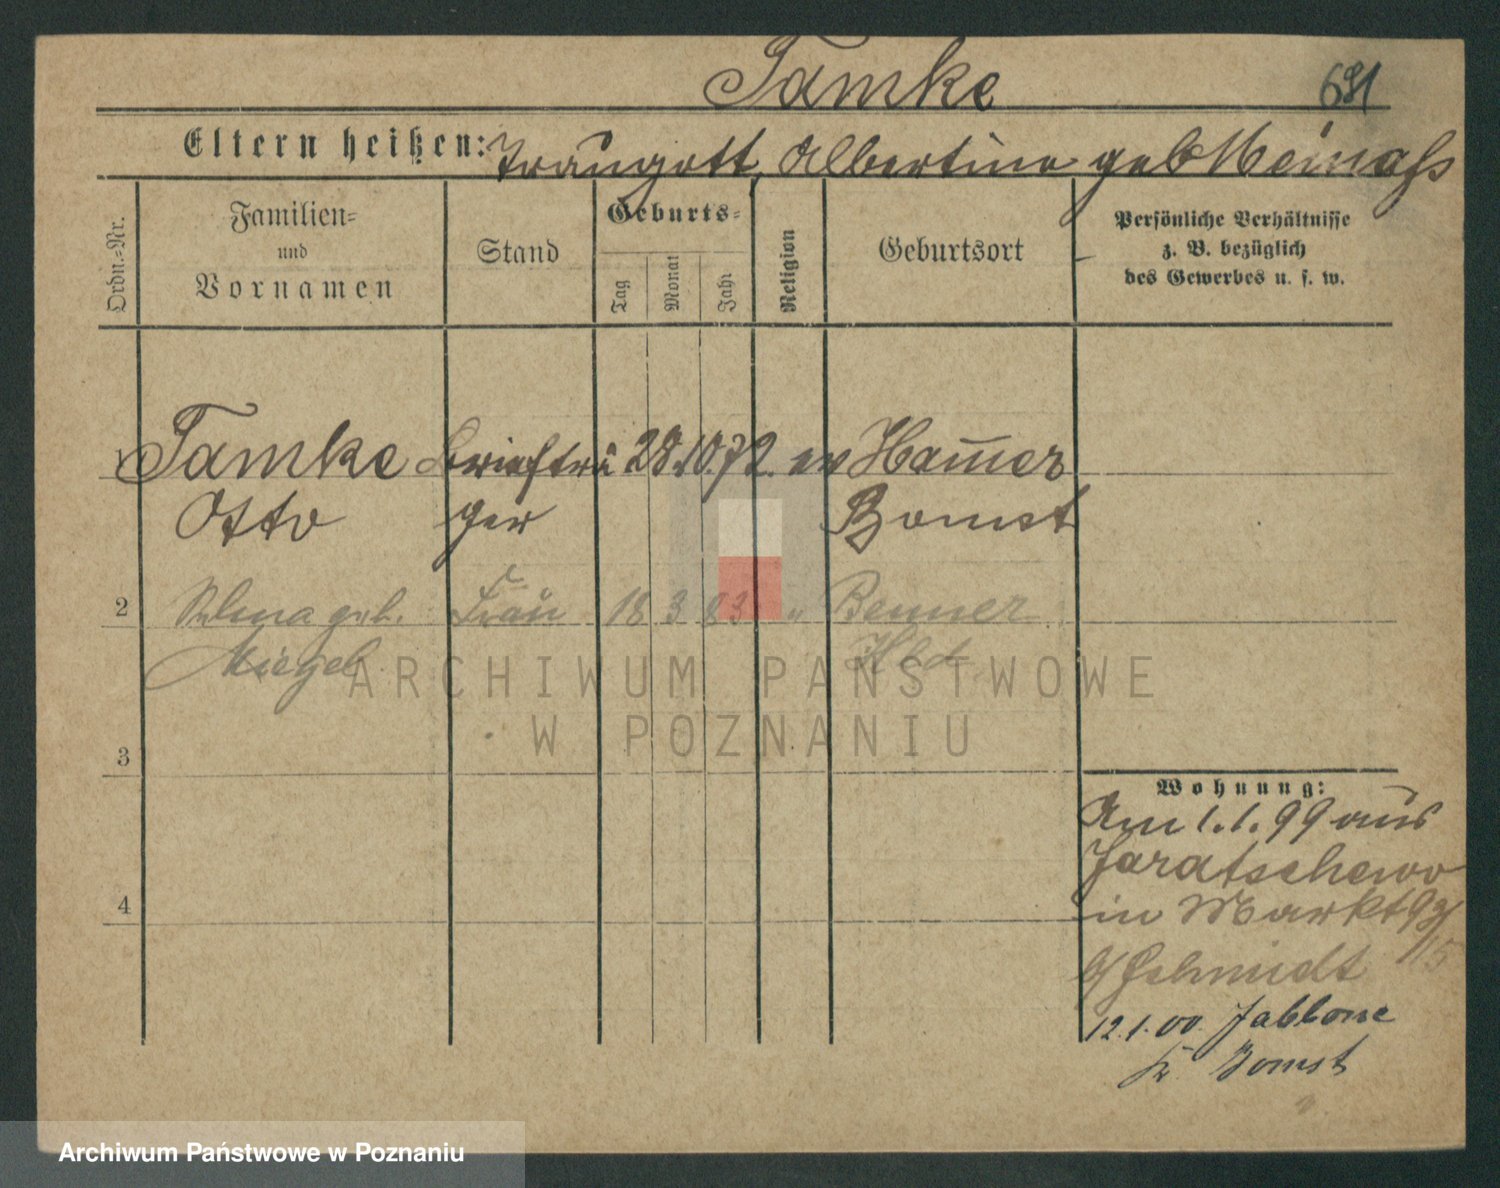 Tamke 681
Eltern heißen: Traugott, Albertine geb
Ordn.-Nr.
Familien- und Vornamen
Stand
Geburts-
Tag
Monat
Jahr
Religion
Geburtsort
Persönliche Verhältnisse
z. B. bezüglich
des Gewerbes u. s. w.
1 Tamke Briefträ 28. 10. 72. ev Ham̄er
Otto ger Bomst
2 Selma geb. Frau 18 3 83 " Benner
Miegel Hld
3
4
Wohnung:
Am 1.1.99 aus
Jaratschewo
in Markt
b/ Schmidt
12.1.00. Jablone
Kr. Bomst
ARCHIWUM PAŃSTWOWE
W POZNANIU
Archiwum Państwowe w Poznaniu